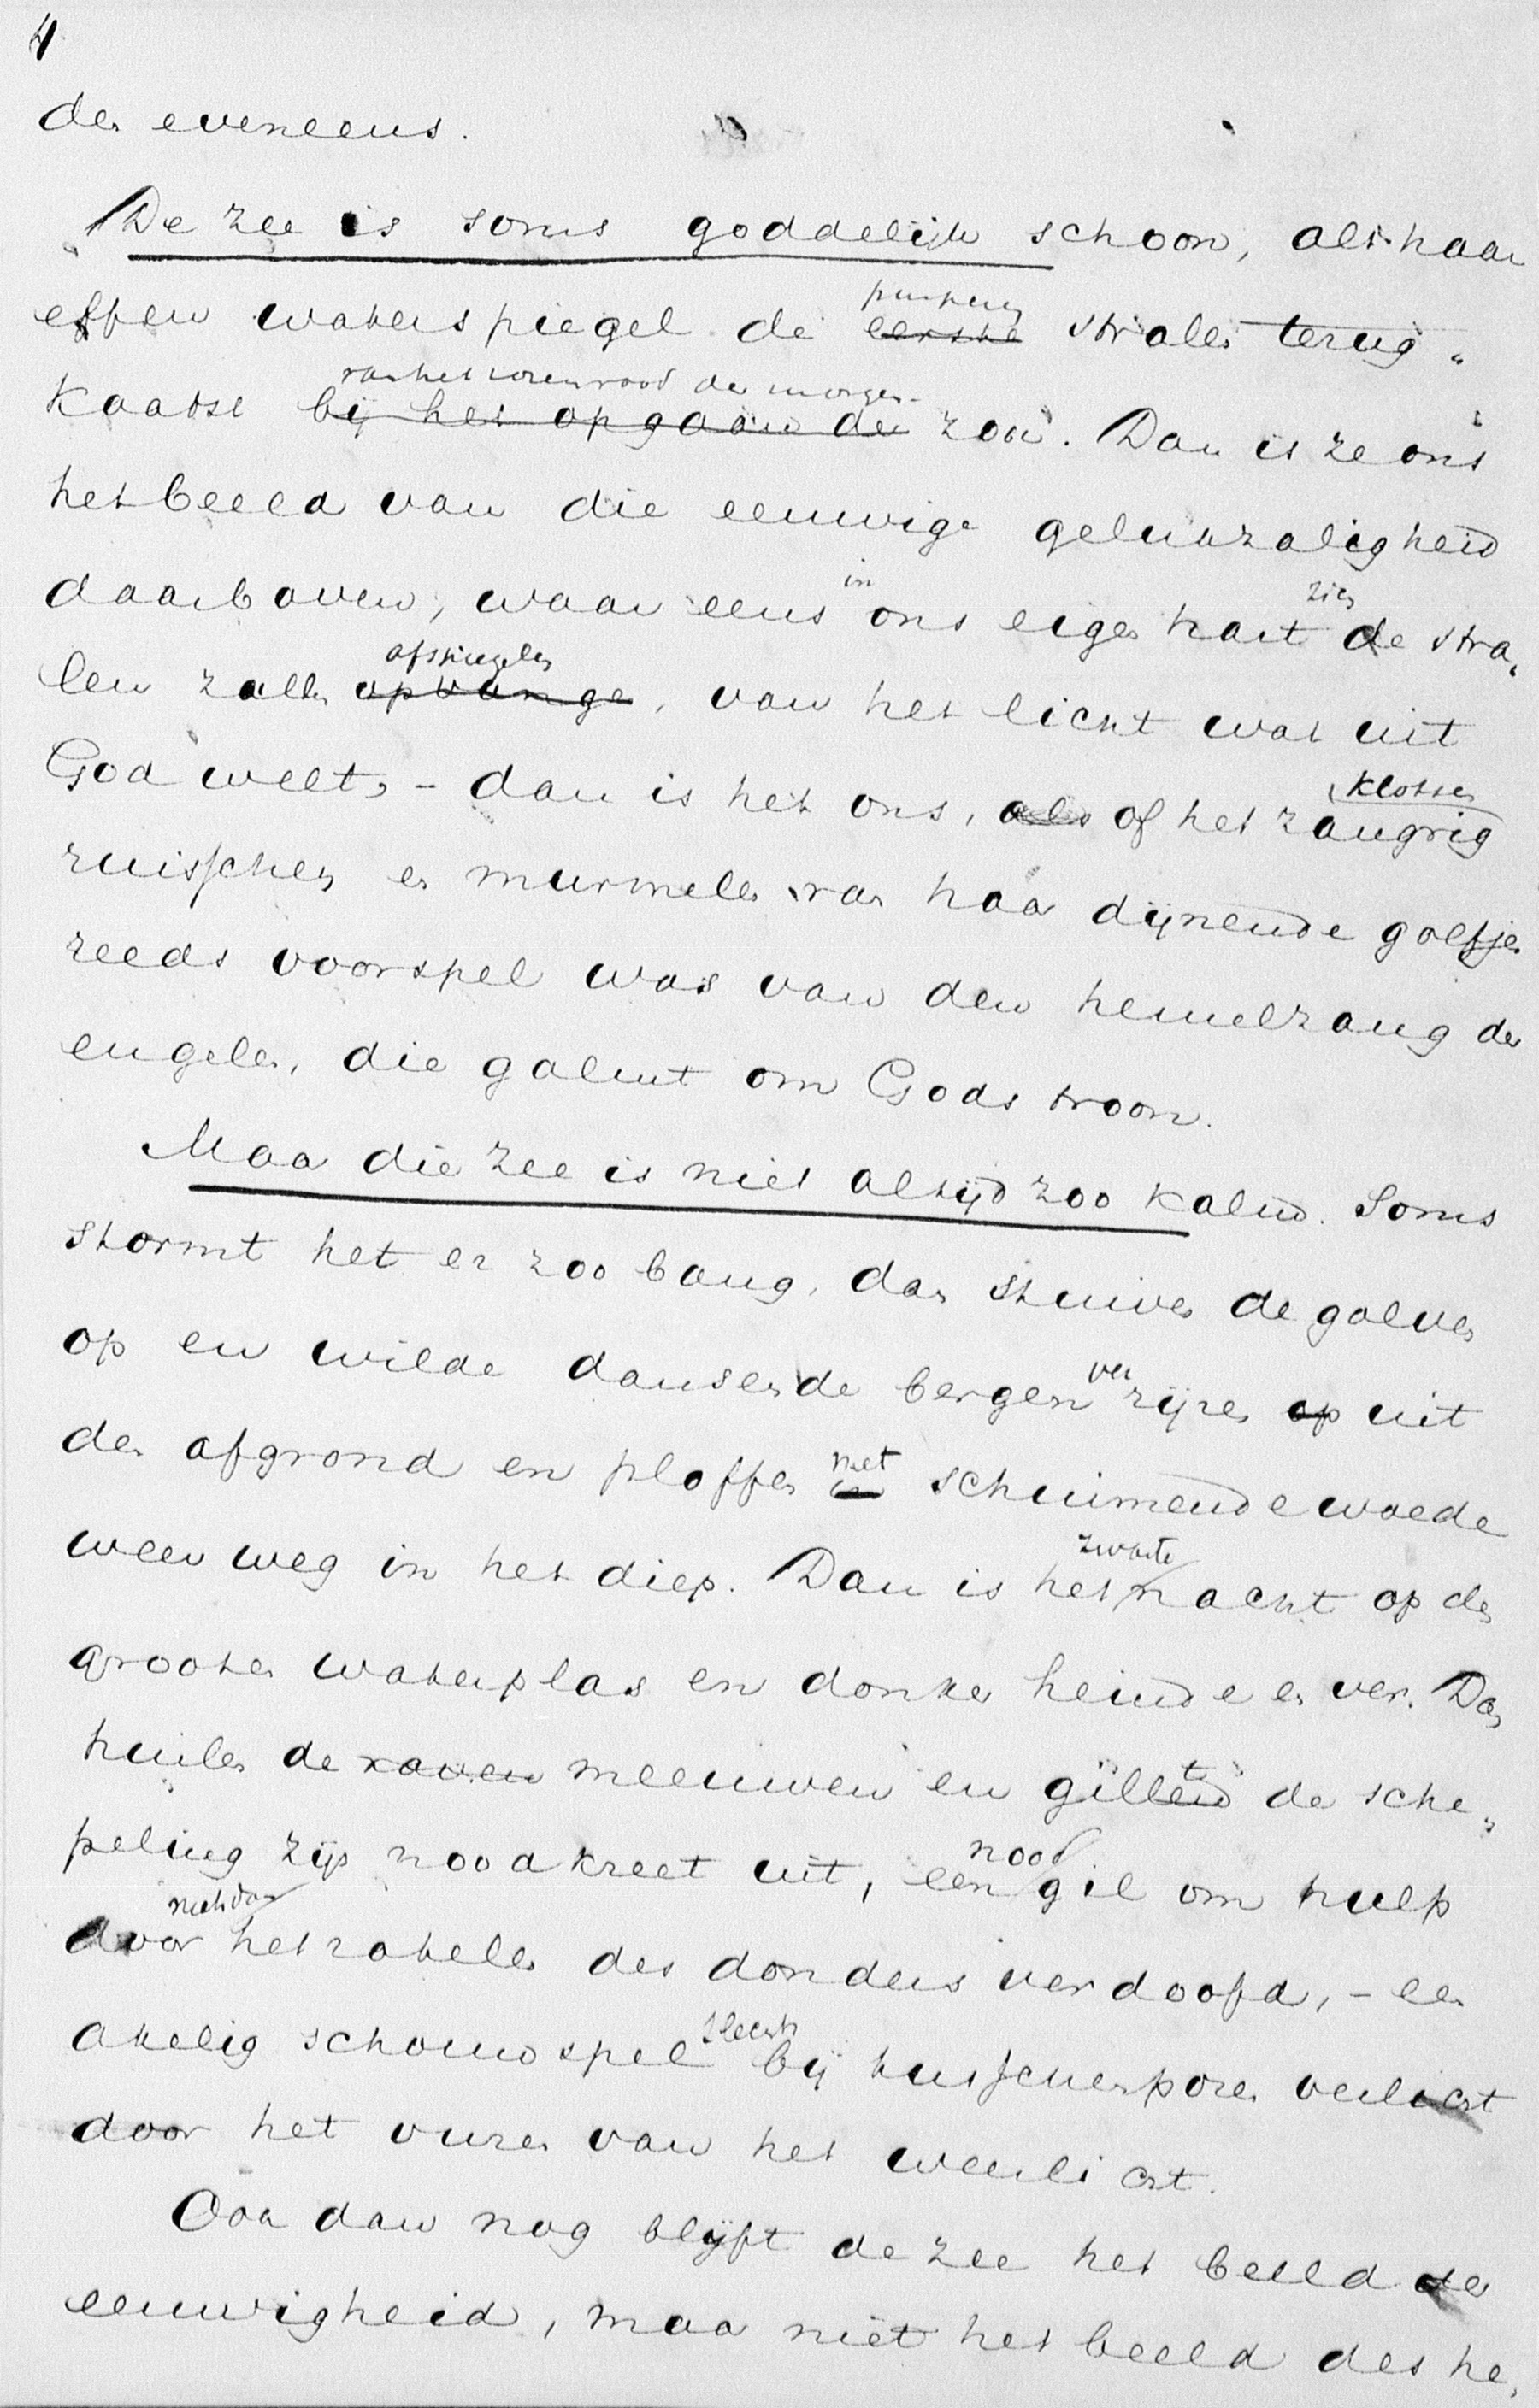 4
den eveneens.
De zee is soms goddelijk schoon, als haar
purperen
effen waterspiegel de eerste stralen terug„
van het morgenrood der morgen-
kaatst bij het opgaan der zon. Dan is ze ons
het beeld van die eeuwige gelukzaligheid
in zich
daarboven, waar eens ons eigen hart de stra„
afspiegelen
len zallen opvangen, van het licht wat uit
God welt, - dan is het ons, als of het zangrig
klotsen
ruisschen en murmelen van haar dijnende golfjes
reeds voorspel was van den hemelzang der
engelen, die galmt om Gods troon.
Maar die zee is niet altijd zoo kalm. Soms
stormt het er zoo bang, dan stuiven de golven
ver
op en wilde dansende bergen rijzen op uit
met
den afgrond en ploffen in schuimende woede
zwarte
weer weg in het diep. Dan is het nacht op den
grooten waterplas en donker heinde en ver. Dan
t
huilen de raven meeuwen en gillend de sche„
nood
peling zijn noodkreet uit, een gil om hulp
door het ratelen des donders verdoofd, - een
slechts
akelig schouwspel bij tusschenpozen verlicht
door het vuren van het weerlicht.
Ook dan nog blijft de zee het beeld der
eeuwigheid, maar niet het beeld des he„